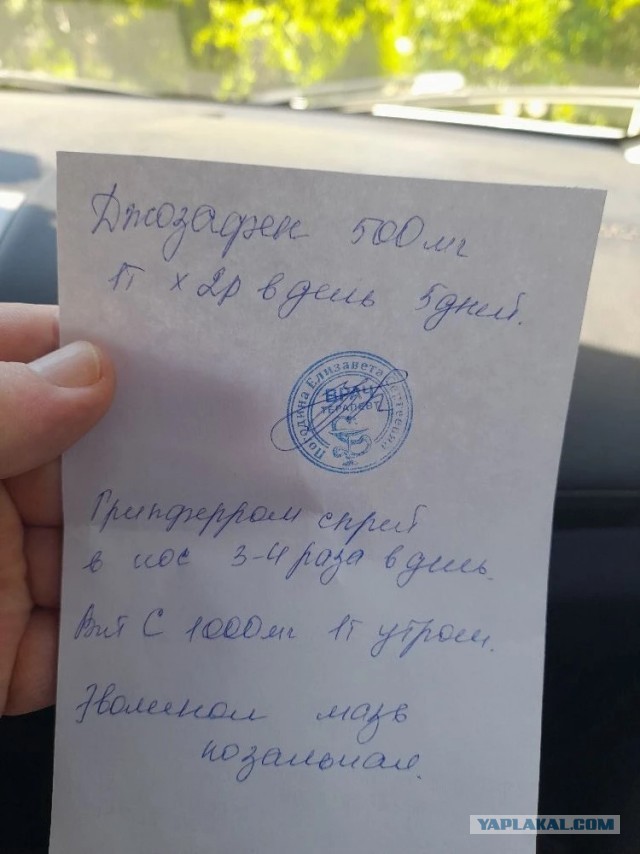 Джозафен 500 мг
1т х 2р в день 5 дней.
Породина Елизавета Сергеевна
ВРАЧ
ТЕРАПЕВТ
Грипферром спрей
в нос 3-4 раза в день.
Вит С 1000мг 1т утром.
Эвоменол мазь
нозальная.
YAPLAKAL.COM